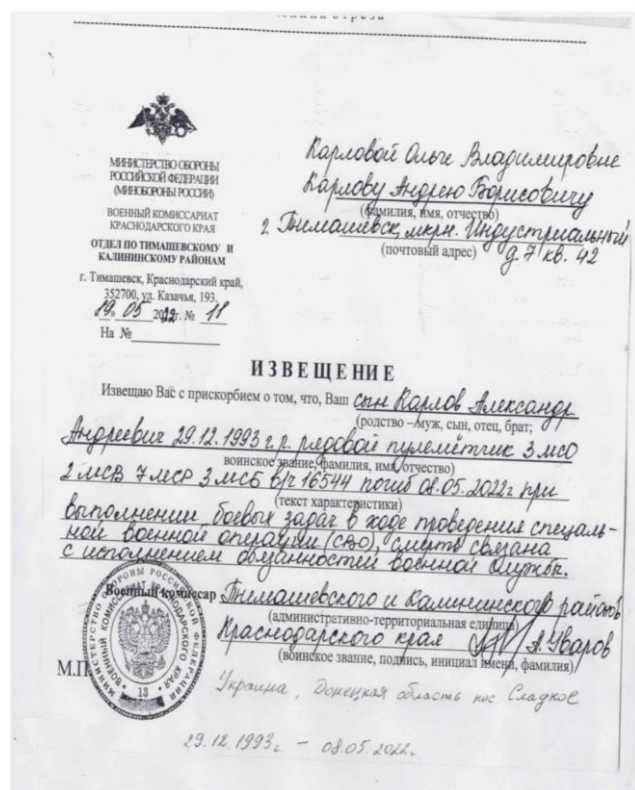 МИНИСТЕРСТВО ОБОРОНЫ
РОССИЙСКОЙ ФЕДЕРАЦИИ
(МИНОБОРОНЫ РОССИИ)
ВОЕННЫЙ КОМИССАРИАТ
КРАСНОДАРСКОГО КРАЯ
ОТДЕЛ ПО ТИМАШЕВСКОМУ И
КАЛИНИНСКОМУ РАЙОНАМ
г. Тимашевск, Краснодарский край,
352700, ул. Казачья, 193.
19 » 05 2022г. № 11
На №
Карловой Ольге Владимировне
Карлову Андрею Борисовичу
(фамилия, имя, отчество)
г. Тимашевск, мкрн. Индустриальный
(почтовый адрес) д. 7 кв. 42
ИЗВЕЩЕНИЕ
Извещаю Вас с прискорбием о том, что, Ваш сын Карлов Александр
(родство – муж, сын, отец, брат;
Андреевич 29.12.1993 г.р. рядовой пулемётчик 3 мсо
воинское звание, фамилия, имя, отчество)
2 мсв 7 мср 3 мсб в/ч 16544 погиб 08.05.2022г при
(текст характеристики)
выполнении боевых задач в ходе проведения специаль-
ной военной операции (СВО), смерть связана
с исполнением обязанностей военной службы.
Военный комиссар Тимашевского и Калининского районов
(административно-территориальная единица)
Краснодарского края А. Уваров
(воинское звание, подпись, инициал имени, фамилия)
М.П.
МИНИСТЕРСТВО ОБОРОНЫ РОССИЙСКОЙ ФЕДЕРАЦИИ
ВОЕННЫЙ КОМИССАРИАТ КРАСНОДАРСКОГО КРАЯ
13
Украина, Донецкая область пос. Сладкое
29.12.1993г – 08.05.2022г.